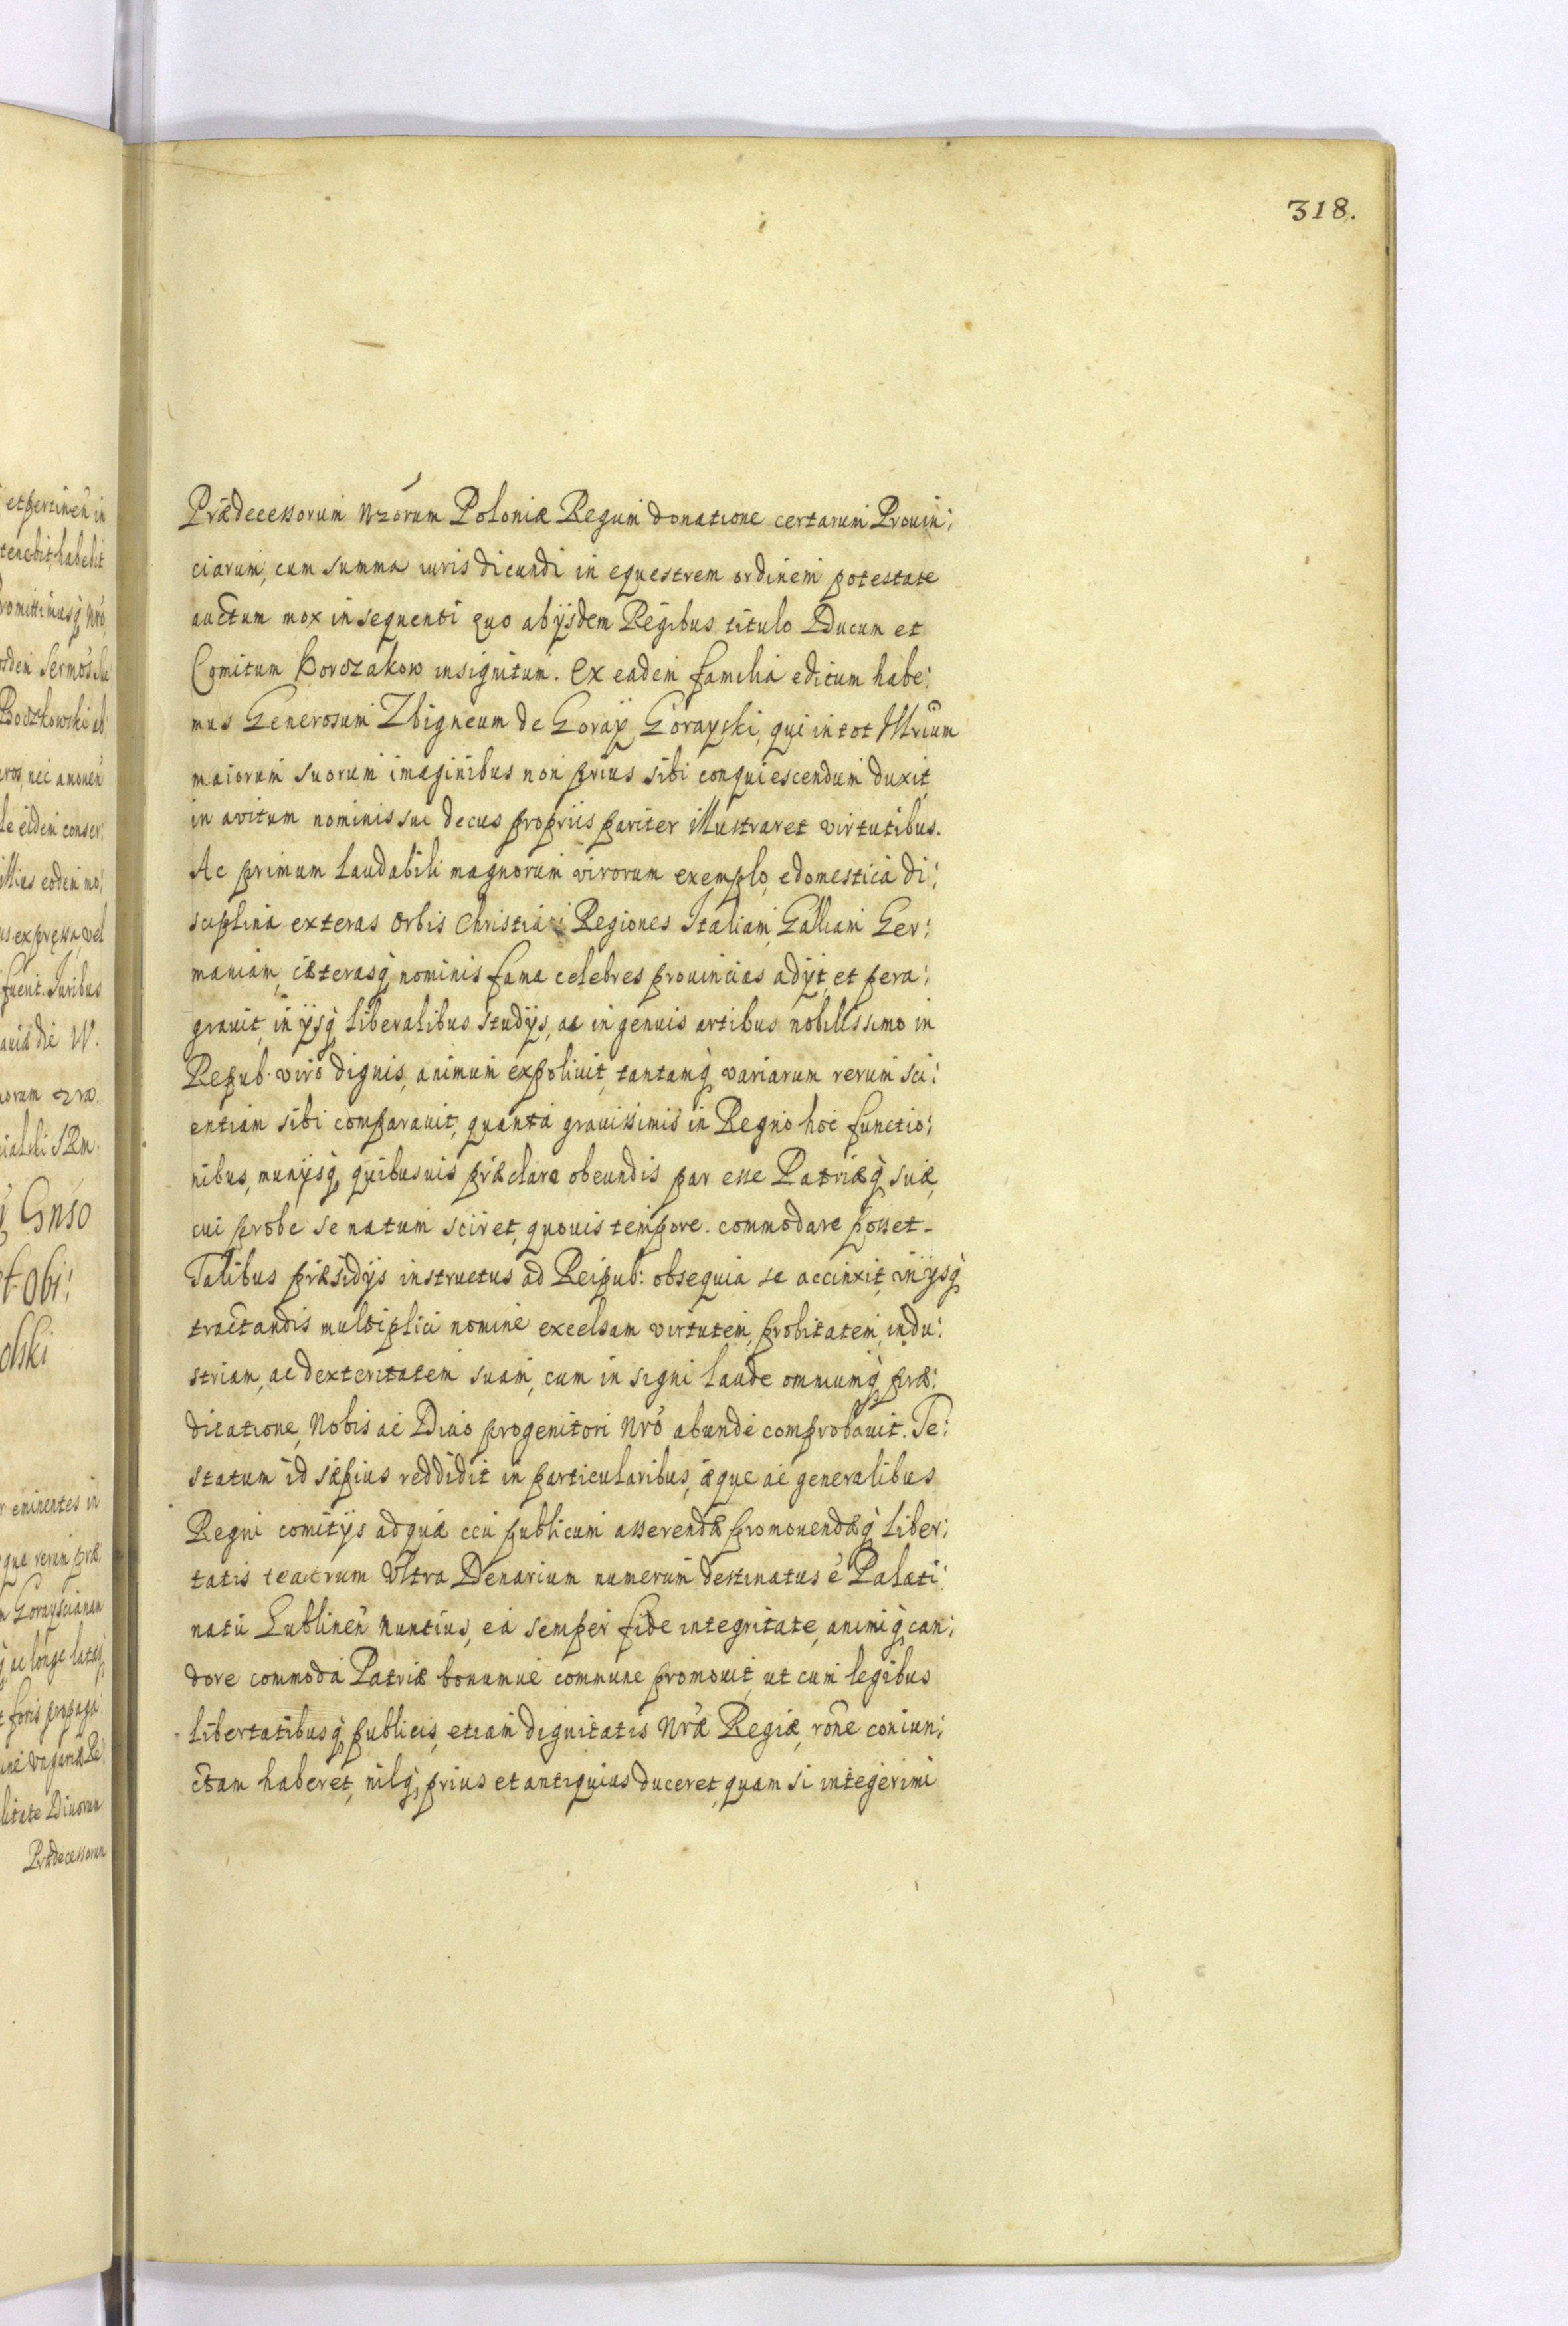 318.
Prædecessorum Nrorum Poloniæ Regum donatione certarum Provin:
ciarum, cum summa iuris dicundi in equestrem ordinem potestate
auctum mox insequenti æuo abijsdem Regibus titulo Ducum et
Comitum Korczakow insignitum. Ex eadem familia editum habe:
mus Generosum Zbigneum de Goray Gorayski, qui in tot Illrium
maiorum suorum imaginibus non prius sibi conquiescendum duxit,
in avitum nominis sui decus propriis pariter illustraret virtutibus.
Ac primum laudabili magnorum virorum exemplo, e domestica di:
sciplina exteras orbis Christiani Regiones Italiam, Galliam Ger:
maniam, cæterasq nominis fama celebres prouincias adijt, et pera:
grauit, in ijsq liberalibus studijs, ac ingenuis artibus nobilissimo in
Repub. viro dignis, animum expoliuit, tantamq variarum rerum sci:
entiam sibi comparauit, quanta grauissimis in Regno hoc functio:
nibus, munijsq, quibusuis præclare obeundis par esse Patriæq suæ,
cui probe se natum sciret, quouis tempore commodare posset.
Talibus præsidijs instructus ad Reipub: obsequia se accinxit, in ijsq
tractandis multiplici nomine excelsam virtutem, probitatem, indu:
striam, ac dexteritatem suam, cum insigni laude omniumq præ:
dicatione, Nobis ac Diuo progenitori Nro abunde comprobauit. Te:
statum id sæpius reddidit in particularibus, æque ac generalibus
Regni comitijs ad quæ ceu publicum asserendæ promouendæq liber:
tatis teatrum Vltra Denarium numerum destinatus è Palati:
natu Lublinen Nuntius, ea semper fide integritate, animiq can:
dore commoda Patriæ bonumue commune promouit, ut cum legibus
libertatibusq publicis, etiam dignitatis Nræ Regiæ, rone coniun:
ctam haberet, nilq prius et antiquius duceret, quam si integerimi